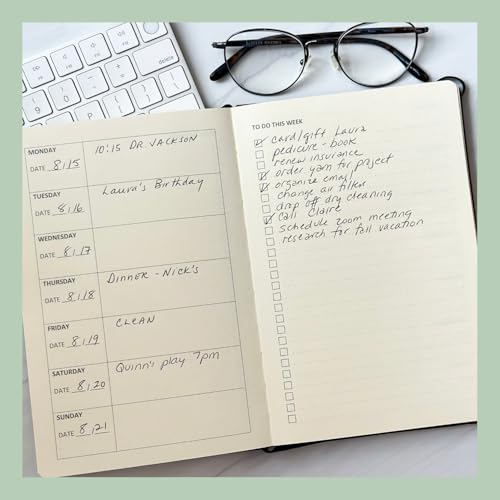 MONDAY
DATE 8/15
10:15 DR JACKSON
TUESDAY
DATE 8/16
Laura's Birthday
WEDNESDAY
DATE 8/17
THURSDAY
DATE 8/18
DINNER - NICK'S
FRIDAY
DATE 8/19
CLEAN
SATURDAY
DATE 8/20
Quinn's play 7pm
SUNDAY
DATE 8/21
TO DO THIS WEEK
card/gift Laura
pedicure - book
renew insurance
order yarn for project
organize email
change air filter
drop off dry cleaning
Call Claire
schedule zoom meeting
research for fall vacation